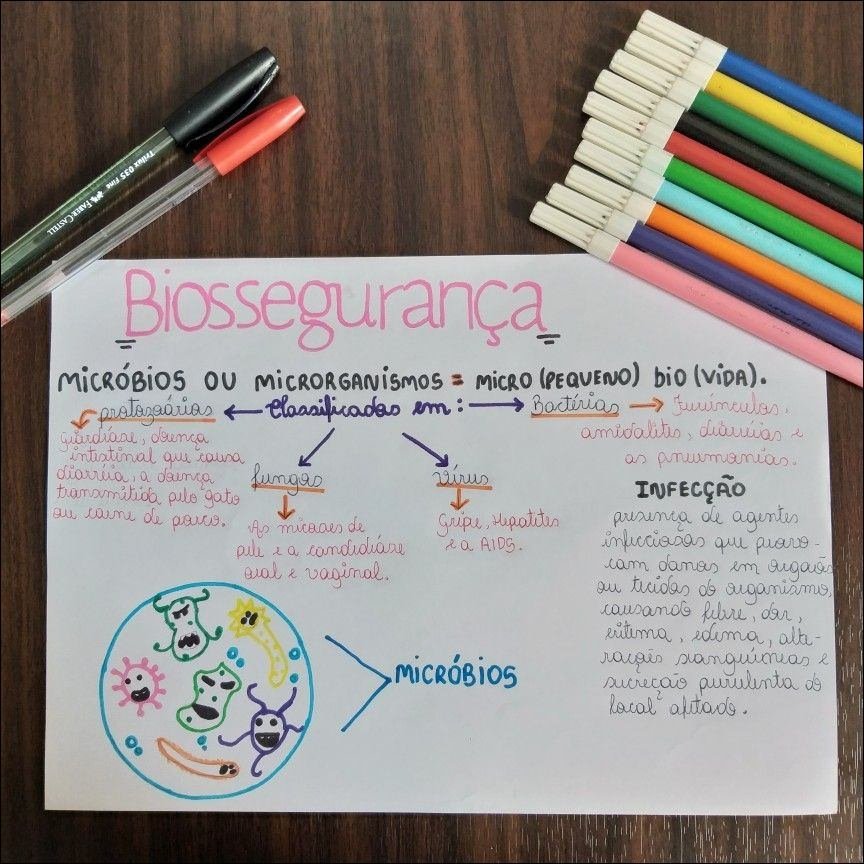 Trilux 035 Fine
FABER CASTELL
Biossegurança
MICRÓBIOS OU MICRORGANISMOS = MICRO (PEQUENO) BIO (VIDA).
protozoários ← Classificados em: → Bactérias → Furúnculos,
amidalites, diárréias e
as pneumonias.
giárdiase, doença
intestinal que causa
diarréia, a doença
transmitida pelo gato
ou carne de porco.
fungos
As micoses de
pele e a candidíase
oral e vaginal.
vírus
Gripe, Hepatites
e a AIDS.
INFECÇÃO
presença de agentes
infecciosos que provo-
cam danos em orgãos
ou tecidos do organismo,
causando febre, dor,
eritema, edema, alte-
rações sanguíneas e
secreção purulenta do
local afetado.
MICRÓBIOS